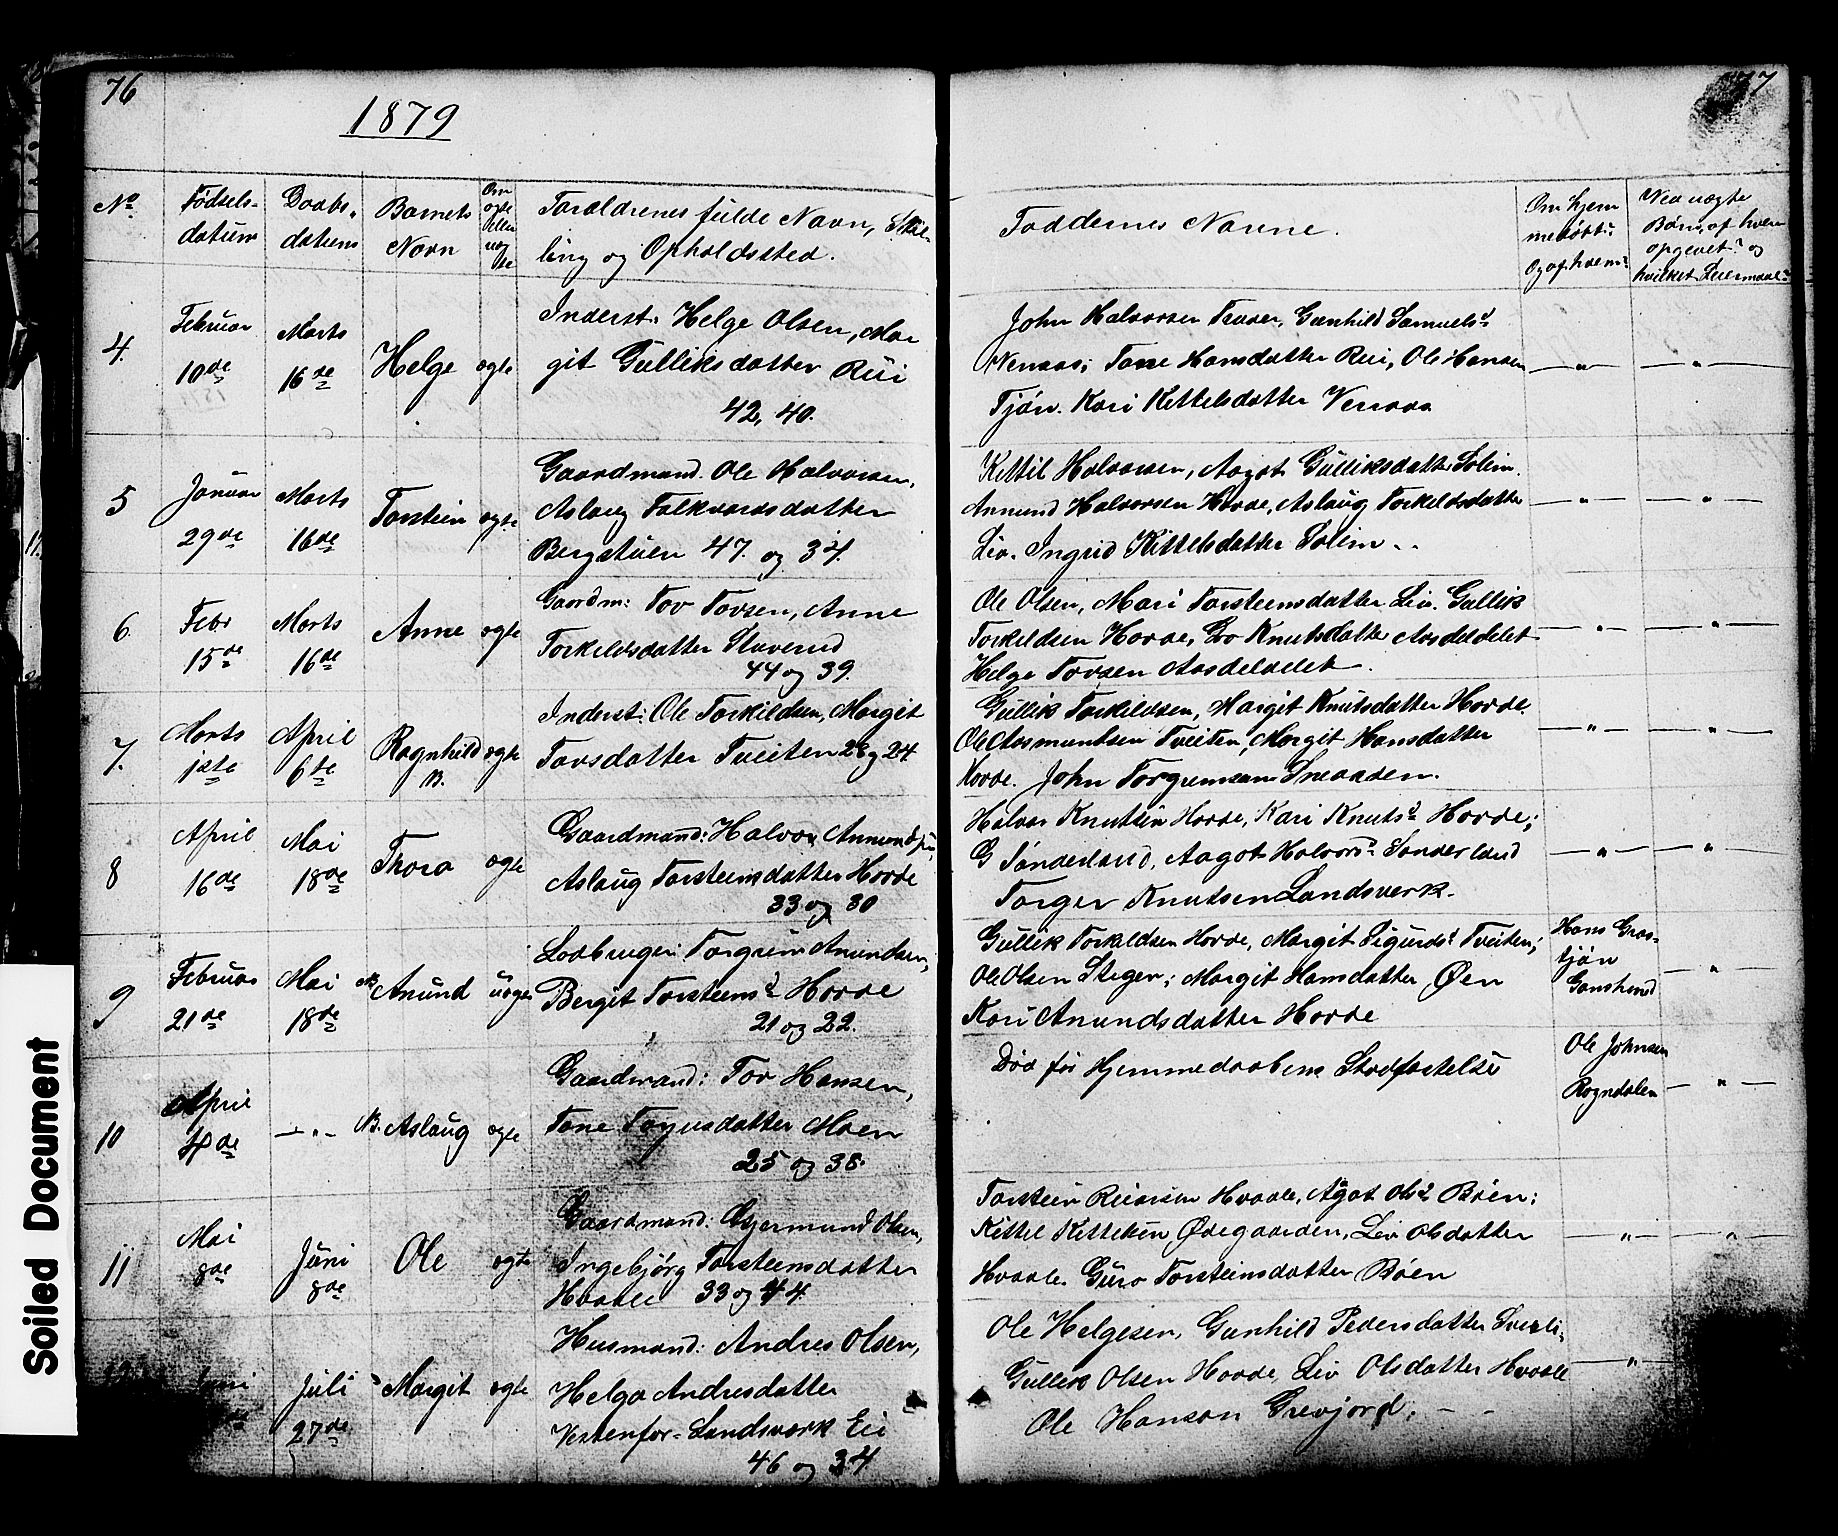 76
1879
77
No.
Fødsels-
datum
Daabs-
datum
Barnets
Navn
Om
ægte
eller
uæg
te
Forældrenes fulde Navn, Stil-
ling og Opholdssted.
Faddernes Navne.
Om hjem
medøbt?
Og af hvem?
Ved uægte
Børn, af hvem
opgevet? og
hvilket Leiermaal?
4.
Februar
10de
Marts
16de
Helge
ægte
Inderst: Helge Olsen, Mar
git Gulliksdatter Rui
42, 40.
John Halvorsen Traaen, Gunhild Samuelsd
Venaas; Tone Hansdatter Rui, Ole Hansen
Tjøn. Kari Kittelsdatter Venaas
5
Januar
29de
Marts
16de
Torstein
ægte
Gaardmand. Ole Halvorsen,
Aslaug Falkvardsdatter
Bergstuen 47. og 34.
Kittil Halvorsen, Aagot Gulliksdatter Solem.
Anmund Halvorsen Hovde, Aslaug Torkildsdatter
Liv. Ingrid Kittelsdatter Solem
6
Febr
15de
Marts
16de
Anne
ægte
Gaardm: Tov Tovsen, Anne
Torkildsdatter Staverud
44 og 39.
Ole Olsen, Mari Torsteinsdatter Liv. Gullik
Torkildsen Hovde, Liv Knutsdatter Aasdeldelet
Helge Tovsen Aasdeldelet.
7.
Marts
1ste
April
6te
Ragnhild
B.
ægte
Inderst: Ole Torkildsen, Margit
Tovsdatter Tveiten 28 og 24
Gullik Torkildsen, Margit Knutsdatter Hovde.
Ole Aasmundsen Tveiten, Margit Hansdatter
Hovde. John Torgrimsen Sneaasen.
8
April
16de
Mai
18de
Thora
ægte
Gaardmand: Halvor Anmunds:,
Aslaug Torsteinsdatter Hovde
33 og 30
Halvor Knutsen Hovde, Kari Knutsd Hovde;
G Sønderland, Aagot Halvorsd Sønderland
Torger Knutsen Landsverk.
9
Februar
21de
Mai
18de
Anund
uægte
Lodbruger: Torgrim Anundsen,
Bergit Torsteinsd Hovde
21 og 22.
Gullik Torkildsen Hovde, Margit Sigurdsd Tveiten;
Ole Olsen Stegen; Margit Hansdatter Øen
Kari Anundsdatter Hovde
Hans Gras-
tjøn
Gransherad
10
April
4de
B. Aslaug
ægte
Gaardmand: Tov Hansen,
Tone Togusdatter Moen
25 og 38.
Død før Hjemmedaabens Stadfæstelse
Ole Johnsen
Rogndalen
11
Mai
8de
Juni
8de
Ole
ægte
Gaardmand: Gjermund Olsen,
Ingebjørg Torsteinsdatter
Hvaale 33 og 44.
Torstein Reiersen Hvaale, Agot Olsd Bøen;
Kittel Kittelsen, Ødegaarden, Liv Olsdatter
Hvaale. Guro Torsteinsdatter Bøen
Juni
Juli
27de
Margit
ægte
Husmand: Andres Olsen,
Helga Andresdatter
Vestenfor-Landsverk Eie
46 og 34
Ole Helgesen, Gunhild Pedersdatter Sverli,
Gullik Olsen Hovde, Liv Olsdatter Hvaale
Ole Hanson Grevjord.
Soiled Document